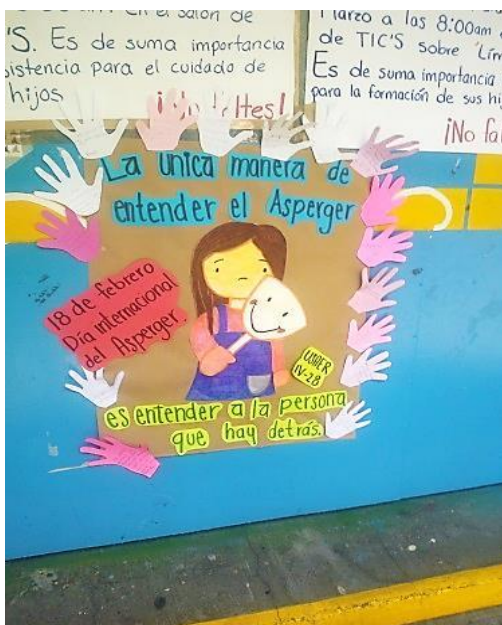 En el salón de
'S. Es de suma importancia
sistencia para el cuidado de
hijos
¡No faltes!
Marzo a las 8:00am
de TIC'S sobre "Lím
Es de suma importancia
para la formación de sus hi
¡No fa
La unica manera de
entender el Asperger
18 de febrero
Día internacional
del Asperger.
USAER
IV-28
es entender a la persona
que hay detrás.